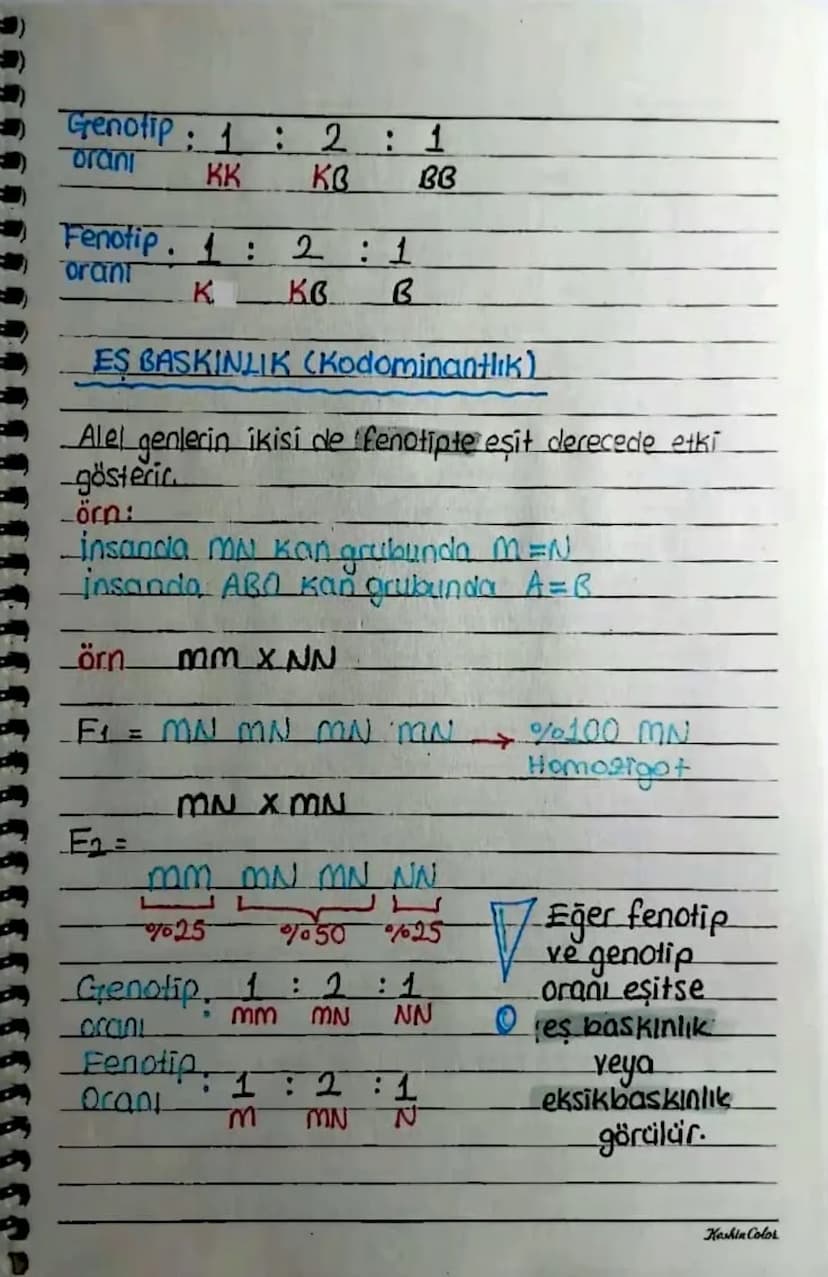 Genotip oranı : 1 : 2 : 1
KK KB BB
Fenotip oranı : 1 : 2 : 1
K KB B
EŞ BASKINLIK (Kodominantlık)
Alel genlerin ikisi de fenotipte eşit derecede etki
gösterir.
örn:
İnsanda MN Kan grubunda M=N
insanda ABO Kan grubunda A=B
örn mm X NN
F1 = MN MN MN MN → %100 MN
Homozigot
MN X MN
F2 =
mm MN MN NN
%25 %50 %25
Genotip oranı : 1 : 2 : 1
mm MN NN
Fenotip Oranı : 1 : 2 : 1
M MN N
Eğer fenotip
ve genotip
oranı eşitse
eş baskınlık
veya
eksikbaskınlık
görülür.
Keskin Color